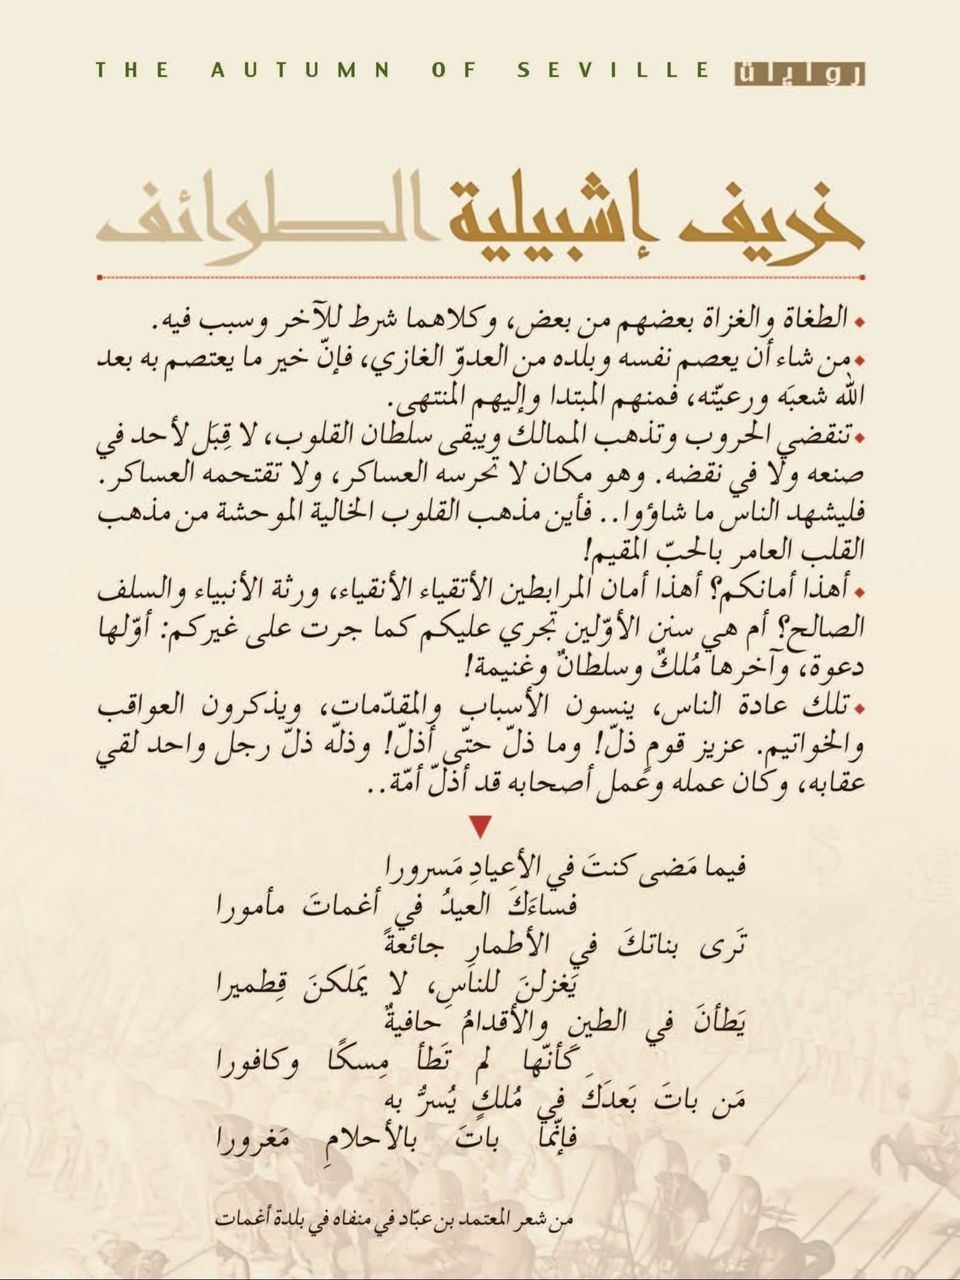 THE AUTUMN OF SEVILLE روايات
خريف إشبيلية الطوائف
الطغاة والغزاة بعضهم من بعض، وكلاهما شرط للآخر وسبب فيه.
من شاء أن يعصم نفسه وبلده من العدوّ الغازي، فإنّ خير ما يعتصم به بعد
الله شعبَه ورعيّته، فمنهم المبتدا وإليهم المنتهى.
تنقضي الحروب وتذهب الممالك ويبقى سلطان القلوب، لا قِبَل لأحد في
صنعه ولا في نقضه. وهو مكان لا تحرسه العساكر، ولا تقتحمه العساكر.
فليشهد الناس ما شاؤوا.. فأين مذهب القلوب الخالية الموحشة من مذهب
القلب العامر بالحبّ المقيم!
أهذا أمانكم؟ أهذا أمان المرابطين الأتقياء الأنقياء، ورثة الأنبياء والسلف
الصالح؟ أم هي سنن الأوّلين تجري عليكم كما جرت على غيركم: أوّلها
دعوة، وآخرها مُلكٌ وسلطانٌ وغنيمة!
تلك عادة الناس، ينسون الأسباب والمقدّمات، ويذكرون العواقب
والخواتيم. عزيز قومٍ ذلّ! وما ذلّ حتّى أذلّ! وذلّه ذلّ رجل واحد لقي
عقابه، وكان عمله وعمل أصحابه قد أذلّ أمّة..
فيما مَضى كنتَ في الأعيادِ مَسرورا
فساءَكَ العيدُ في أغماتَ مأمورا
تَرى بناتكَ في الأطمارِ جائعةً
يَغزلنَ للناسِ، لا يَملكنَ قِطميرا
يَطأنَ في الطينِ والأقدامُ حافيةٌ
كَأنّها لم تَطأ مِسكًا وكافورا
مَن باتَ بَعدَكَ في مُلكٍ يُسرُّ به
فإنّما باتَ بالأحلامِ مَغرورا
من شعر المعتمد بن عبّاد في منفاه في بلدة أغمات